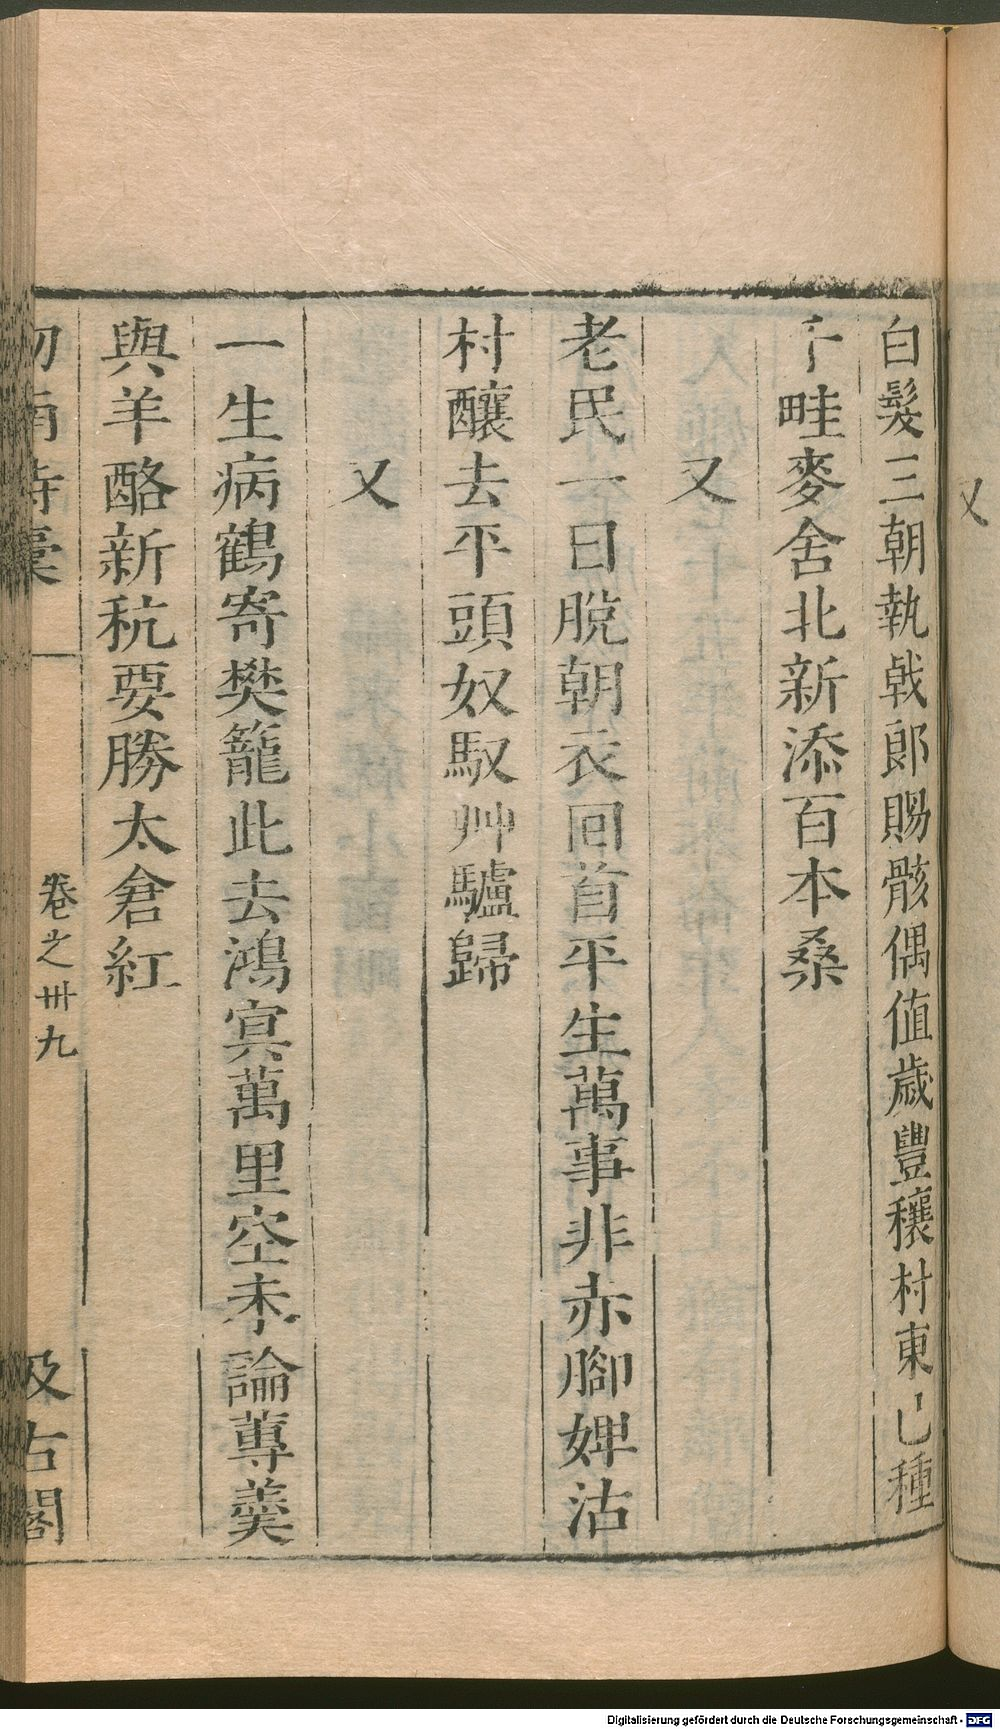 又
白髮三朝執戟郎賜骸偶值歲豐穰村東已種
千畦麥舍北新添百本桑
又
老民一日脫朝衣回首平生萬事非赤腳婢沽
村釀去平頭奴馭艸驢歸
又
一生病鶴寄樊籠此去鴻㝠萬里空未論蓴羹
與羊酪新秔要勝太倉紅
劍南詩稾
卷之卅九
汲古閣
Digitalisierung gefördert durch die Deutsche Forschungsgemeinschaft - DFG